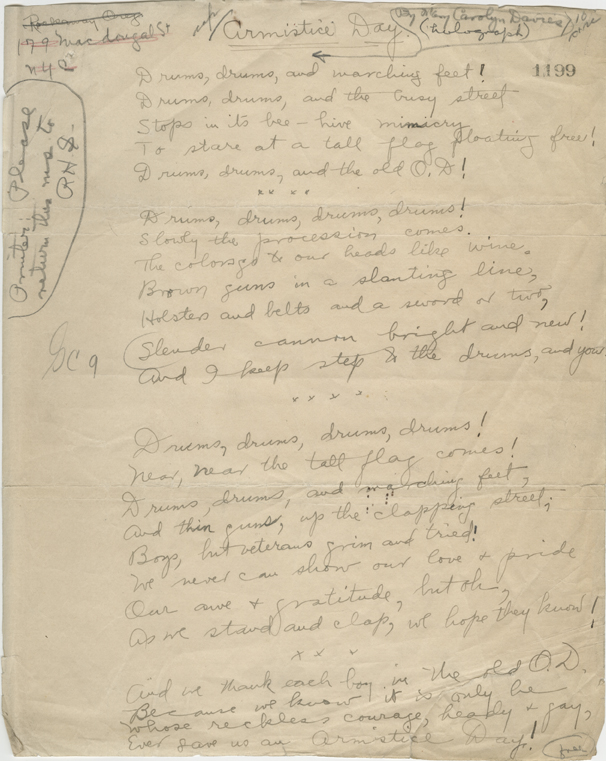 179 Macdougal St
N.Y.C.
Armistice Day.
By Mary Carolyn Davies
(holograph)
1199
Printer: Please
return this ms. to
Drums, drums, and marching feet!
Drums, drums, and the busy street
Stops in its bee-hive mimicry
To stare at a tall flag floating free!
Drums, drums, and the old O.D!
x x x x
Drums, drums, drums, drums!
Slowly the procession comes.
The colors go to our heads like wine,
Brown guns in a slanting line,
Holsters and belts and a sword or two,
Slender cannon bright and new!
And I keep step to the drums, and you.
x x x x
Drums, drums, drums, drums!
Near, near the tall flag comes!
Drums, drums, and marching feet,
And thin guns, up the clapping street;
Boys, but veterans grim and tried!
We never can show our love & pride
Our awe & gratitude, but oh,
As we stand and clap, we hope they know!
x x x
And we thank each boy in the old O.D.
Because we know it is only he
Whose reckless courage, heady & gay,
Ever gave us an Armistice Day!